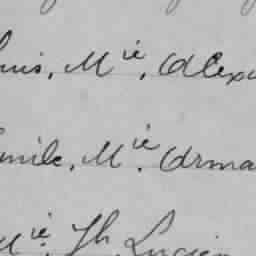 uis, M^ie, Alexa
mile, M^ie, Arma
M^ie, Th, Lucien